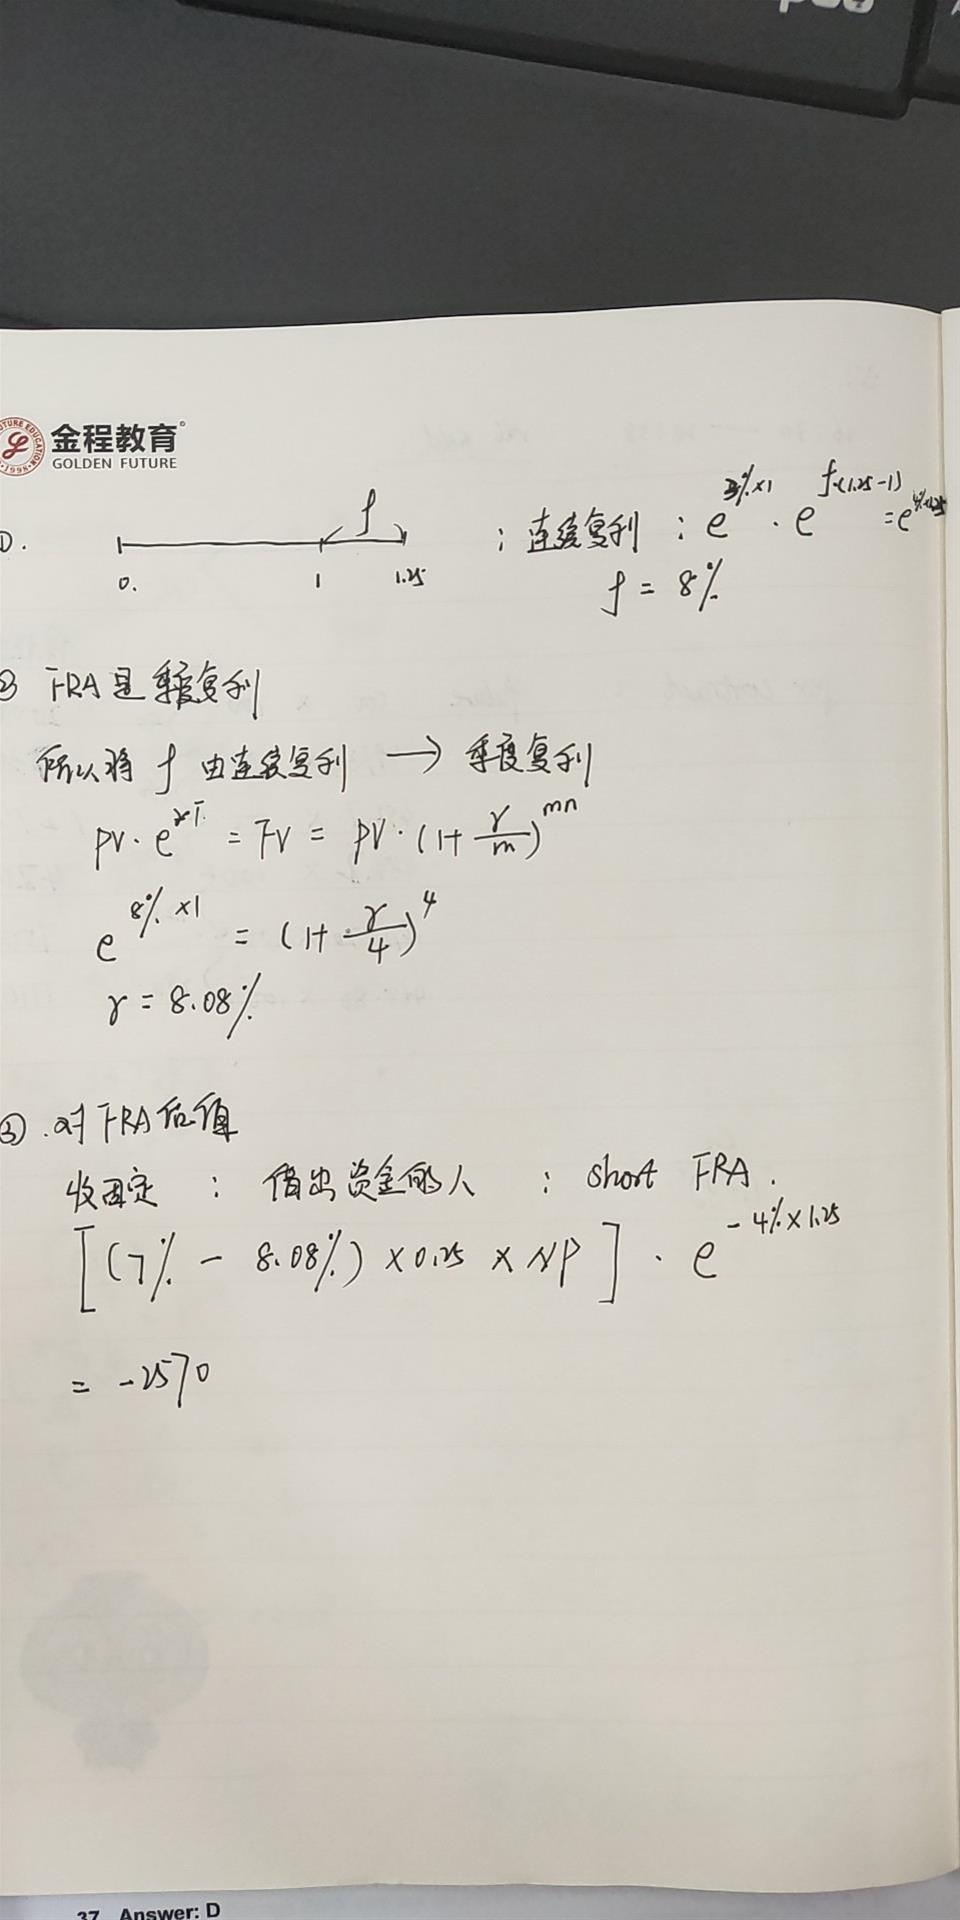 FUTURE EDUCATION
1998
金程教育
GOLDEN FUTURE
①. 0. 1 1.25 f ; 连续复利 : e^{3%×1} · e^{f×(1.25-1)} = e^{4%×1.25}
f = 8%
② FRA是季度复利
所以将 f 由连续复利 → 季度复利
PV·e^{rT} = FV = PV·(1+r/m)^{mn}
e^{8%×1} = (1+r/4)^4
r = 8.08%
③. 对FRA估值
收固定 : 借出资金的人 : short FRA.
[(7% - 8.08%)×0.25×NP] · e^{-4%×1.25}
= -2570
37 Answer: D